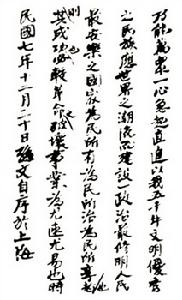 乃能萬眾一心急起直追以我五千年文明優秀
之民族應世界之潮流而建設一政治最修明人民
最安樂之國家為民所有為民所治為民所享者也
則其成功必較革命之破壞事業為尤速尤易也時
民國七年十二月三十日孫文自序於上海